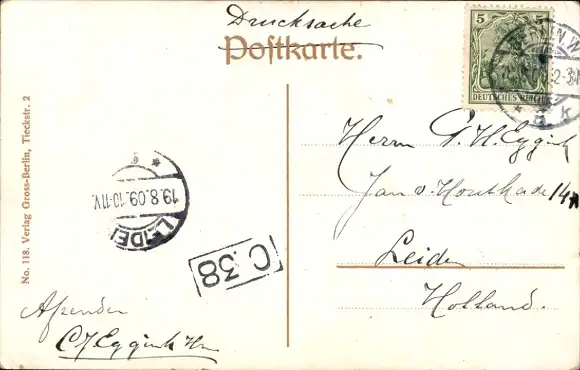 Drucksache
Postkarte.
5 5
DEUTSCHES REICH
No. 118. Verlag Gross-Berlin, Tieckstr. 2
Herrn G. H. Eggink
Jan v. Houtkade 14A
Leiden
Holland.
LEIDEN
19.8.09.10-11V.
C.38
Afzender
C J Eggink Hzn